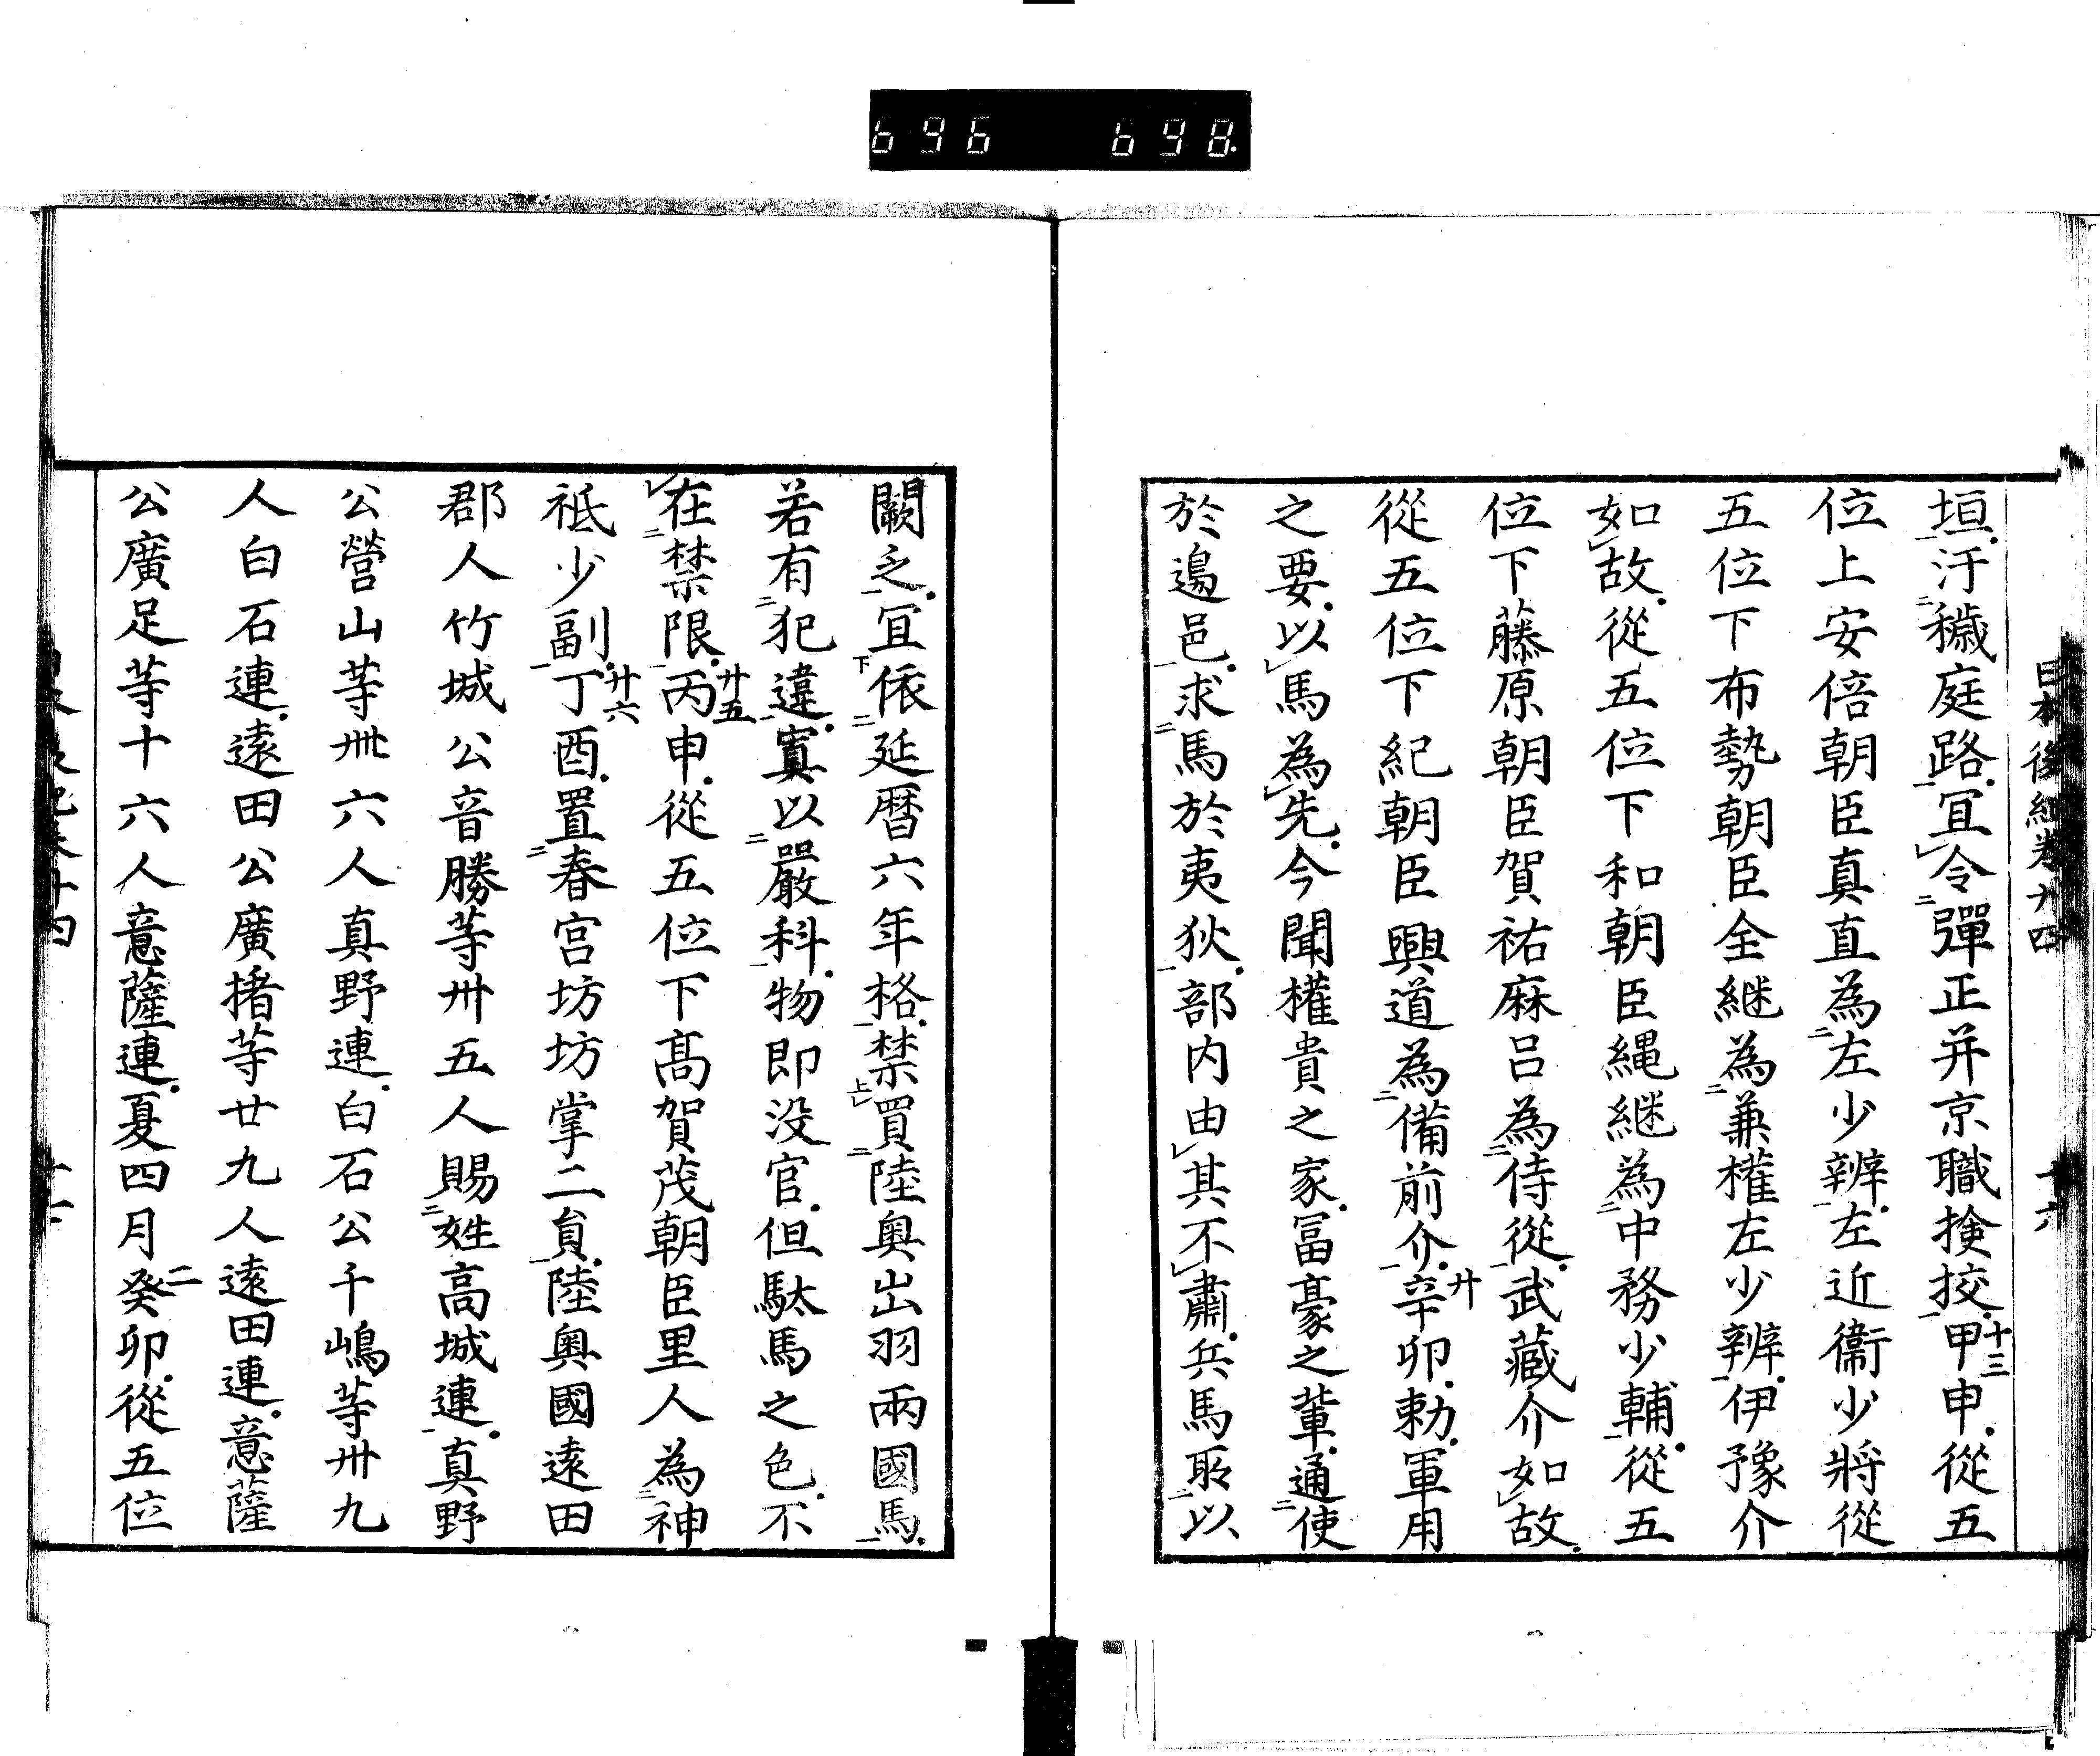 696 698
日本後紀卷十四 十六
垣。汙穢庭路。冝令彈正并京職撿挍。甲申。十三從五
位上安倍朝臣真直為左少辨。左近衞少將從
五位下布勢朝臣全継為兼權左少辨。伊豫介
如故。從五位下和朝臣縄継為中務少輔。從五
位下藤原朝臣賀祐麻呂為侍從。武藏介如故。
從五位下紀朝臣興道為備前介。辛卯。廿勅。軍用
之要。以馬為先。今聞權貴之家。冨豪之輩。通使
於邊邑。求馬於夷狄。部内由其不肅。兵馬所以
闕乏。冝依延暦六年格。禁買陸奥出羽兩國馬。
若有犯違。寘以嚴科。物即没官。但駄馬之色。不
在禁限。丙申。廿五從五位下髙賀茂朝臣里人為神
祇少副。丁酉。廿六置春宮坊坊掌二負。陸奥國遠田
郡人竹城公音勝等卅五人賜姓高城連。真野
公營山等卌六人真野連。白石公千嶋等卅九
人白石連。遠田公廣楮等廿九人遠田連。意薩
公廣足等十六人意薩連。夏四月癸卯。二從五位